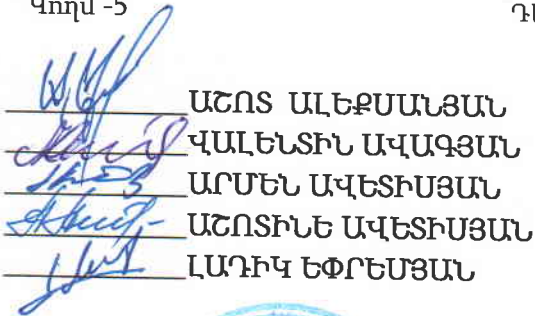 Կողմ -5
ԱՇՈՏ ԱԼԵՔՍԱՆՅԱՆ
ՎԱԼԵՆՏԻՆ ԱՎԱԳՅԱՆ
ԱՐՄԵՆ ԱՎԵՏԻՍՅԱՆ
ԱՇՈՏԻՆԵ ԱՎԵՏԻՍՅԱՆ
ԼԱԴԻԿ ԵՓՐԵՄՅԱՆ